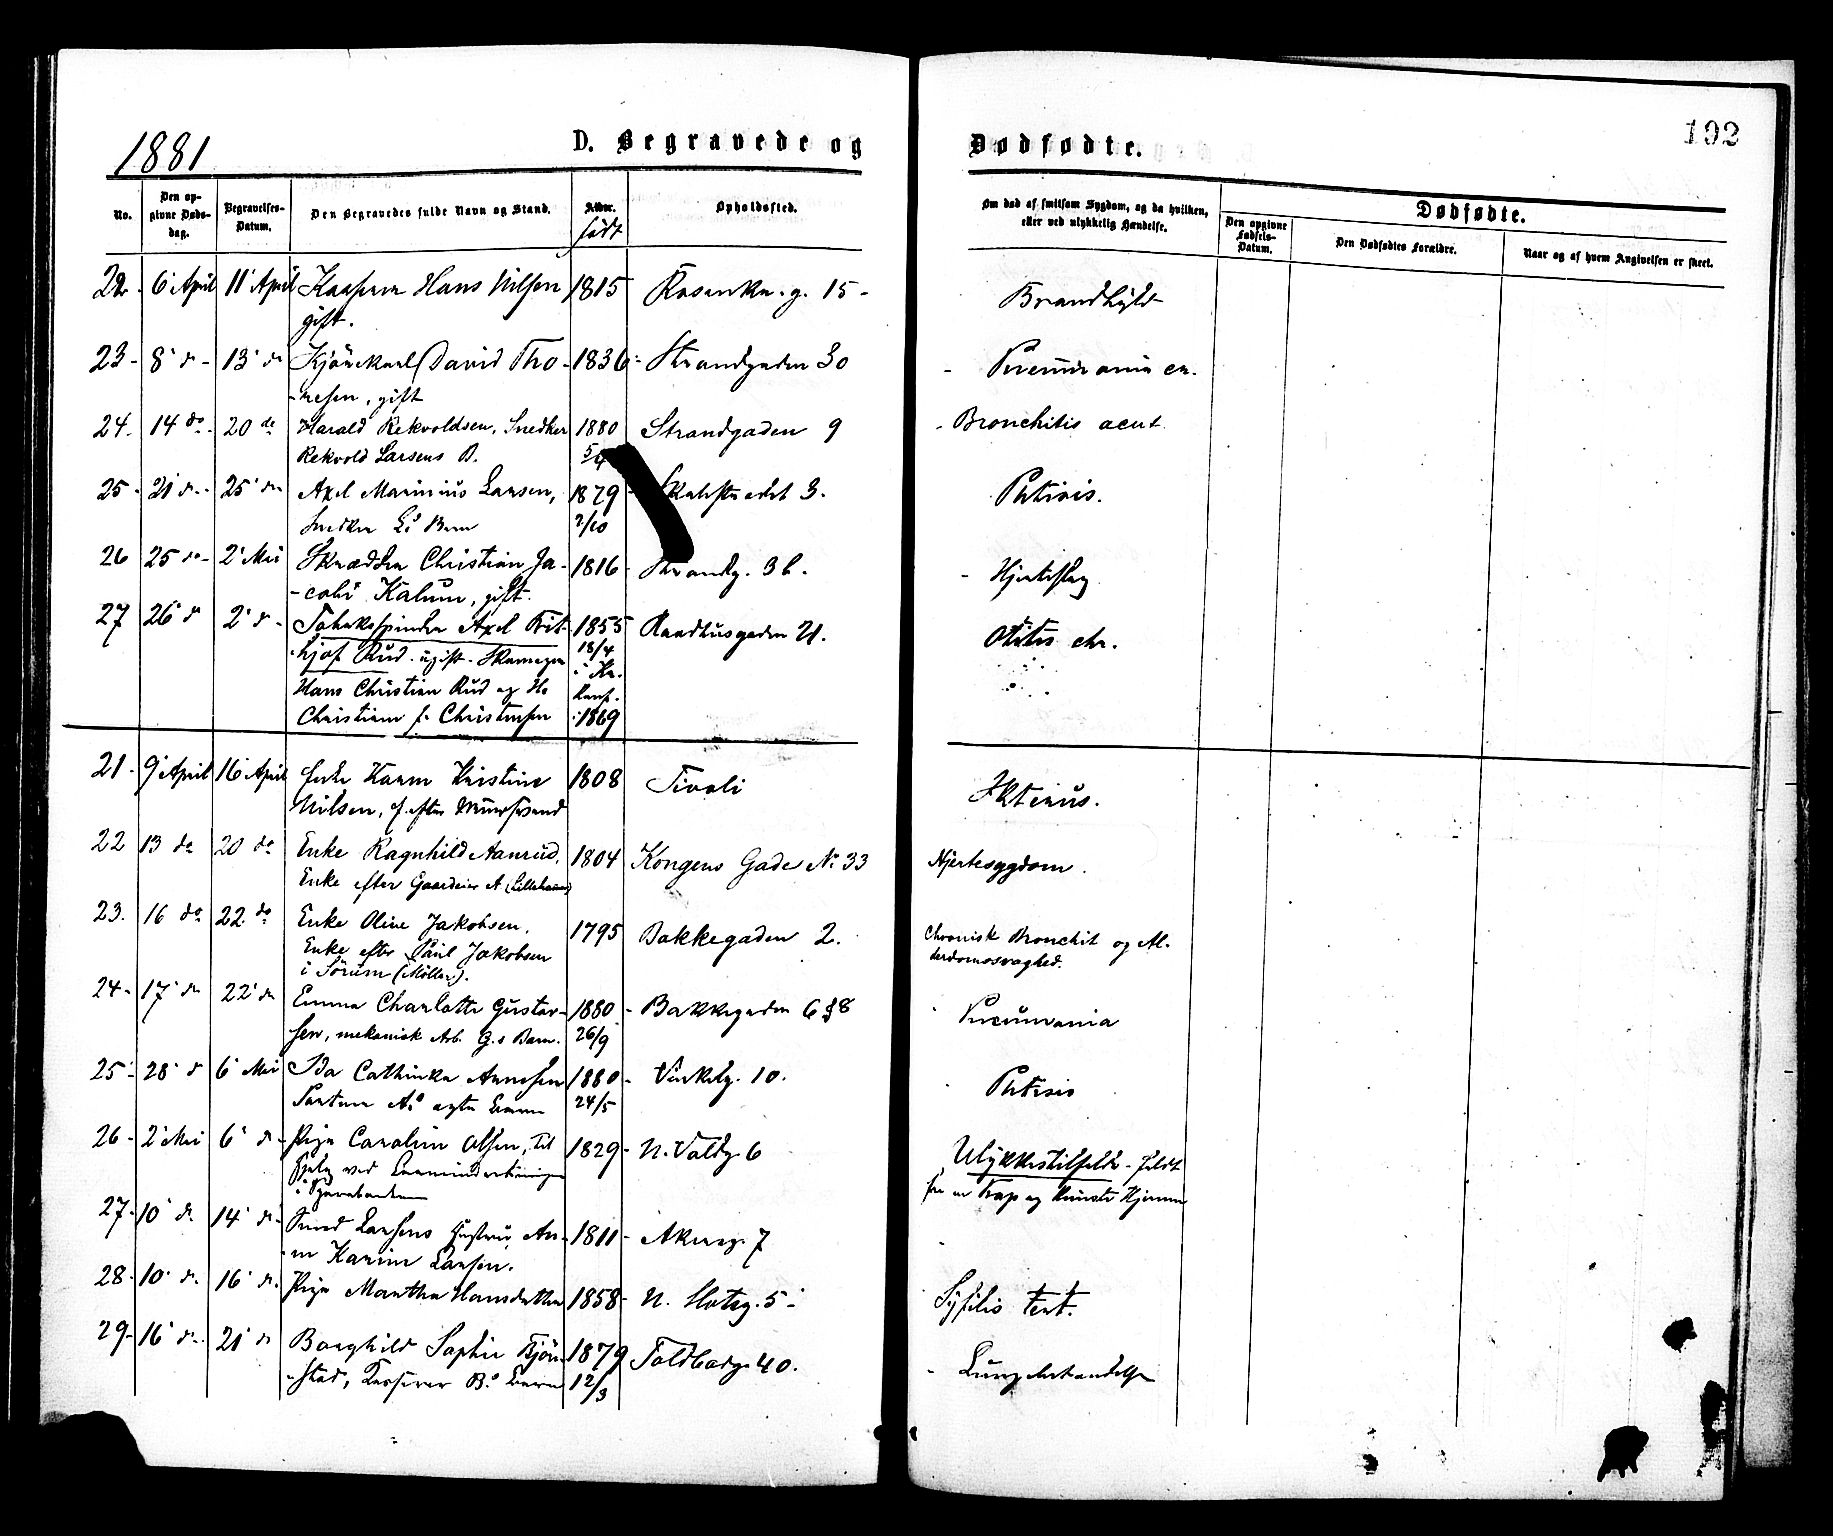 1881
D. Begravede og Dødfødte.
192
No.
Den opgivne Dødsdag.
Begravelses-Datum.
Den Begravedes fulde Navn og Stand.
Alder.
født
Opholdssted.
Om død af smitsom Sygdom, og da hvilken, eller ved ulykkelig Hændelse.
Dødfødte.
Den opgivne Fødsels-Datum.
Den Dødfødtes Forældre.
Naar og af hvem Angivelsen er skeet.
22. 6 April 11 April Hans Nilsen 1815 Rosenkr. g. 15
gift.
23 8 d 13 d Kjørekarl David Tho- 1836 Strandgaden 30
nesen, gift
24. 14 do 20 do Harald Rekvoldsen, Snedker 1880 Strandgaden 9 Bronchitis acut
Rekvold Larsens B. 5/4
25 21 d 25 d Axel Marinius Larsen, 1879 3. Phtisis.
Snedker L's Barn 2/10
26 25 do 2 Mai Skrædder Christian Ja- 1816 Strandg. 3 b. Hjerteslag
cobi Kalum, gift.
27 26 d 2 d Tobaksspinder Axel Frit- 1855 Raadhusgaden 21. Otitis chr.
hjof Rud. ugift. 18/4
Hans Christian Rud og H. i Kr.
Christiane f. Christensen Konf. 1869
21. 9 April 16 April Enke Karen Kristine 1808 Tivoli Ikterus.
Nilsen, f. efter Muursvend
22 13 do 20 do Enke Ragnhild Aanrud, 1804 Kongens Gade No 33 Hjertesygdom.
Enke efter Gaardeier A (Lillehammer)
23. 16 do 22 do Enke Oline Jakobsen, 1795 Bakkegaden 2. Chronisk Bronchit og Al-
Enke efter Paul Jakobsen derdomssvaghed.
i Sørum (Møller).
24 17 d 22 d Emma Charlotte Gustav- 1880 Bakkegaden 6 & 8 Pneumonia
sen, mekanisk Arb. G.s Barn. 26/9
25 28 d 6 Mai Ida Cathinka Arnesen 1880 Vinkelg. 10. Phtisis
A's ægte Barn 24/5
26 2 Mai 6 d Pige Caroline Olsen, til 1829 N. Voldg. 6 Ulykkestilfelde - faldt
Hjelp ved fra en Trap og Hjerne
i Sparebanken
27 10 d 14 d Smed Larsens Hustru An- 1811 Akersg. 7
ne Karine Larsen.
28 10 d 16 d Pige Marthea Hansdatter 1858 N. Slotsg. 5 Syfilis tert.
29 16 d 21 d Borghild Sophie Bjørn- 1879 Toldbodg. 40. Lungebetændelse
stad, Kasserer B.s Barn 12/3